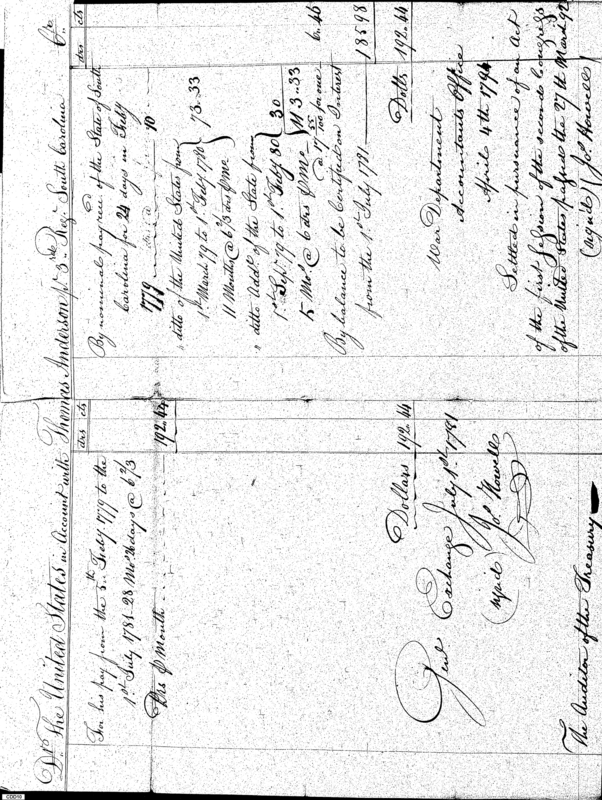 Dr. The United States in Account with Thomas Anderson pr. 3rd Regt. South Carolina Cr.
drs cts
For his pay from the 5th Feby 1779 to the
1st July 1781 28 Mos. 26 days @ 6 2/3
Drs ⅌ Month 192.44
Dollars 192.44
Genl Exchange July 1st 1781
(signed) Jos. Howell
The Auditor of the Treasury
drs cts
By nominal pay rece. of the State of South
Carolina for 24 days in Feby
1779 10
ditto of the United States from
1st March 79 to 1st Feby 1780 73.33
11 Months @ 6 2/3 drs ⅌ Mo.
ditto Addl. of the State from
1st Sepr. 79 to 1st Feby 80 30
15 Mos. @ 6 drs ⅌ Mo. 113.33
@ 17 55/100 for one 6.46
By balance to be Certified on Interest
from the 1st July 1781 185.98
Dolls 192.44
War Department
Accountants Office
April 4th 1794
Settled in pursuance of an Act
of the first Session of the second Congress
of the United States passed the 27th March 92
(signed) Jos. Howell